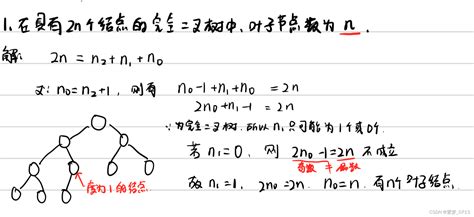 1. 在具有2n个结点的完全二叉树中，叶子节点数为 n .
解: 2n = n₂ + n₁ + n₀
又: n₀ = n₂+1, 则有 n₀-1+n₁+n₀ = 2n
2n₀+n₁-1 = 2n
∵为完全二叉树, 所以 n₁只可能为1个或0个.
若 n₁=0, 则 2n₀-1=2n 不成立
奇数 ≠ 偶数
度为1的结点
故 n₁=1, 2n₀=2n, n₀=n. 有n个叶子结点.